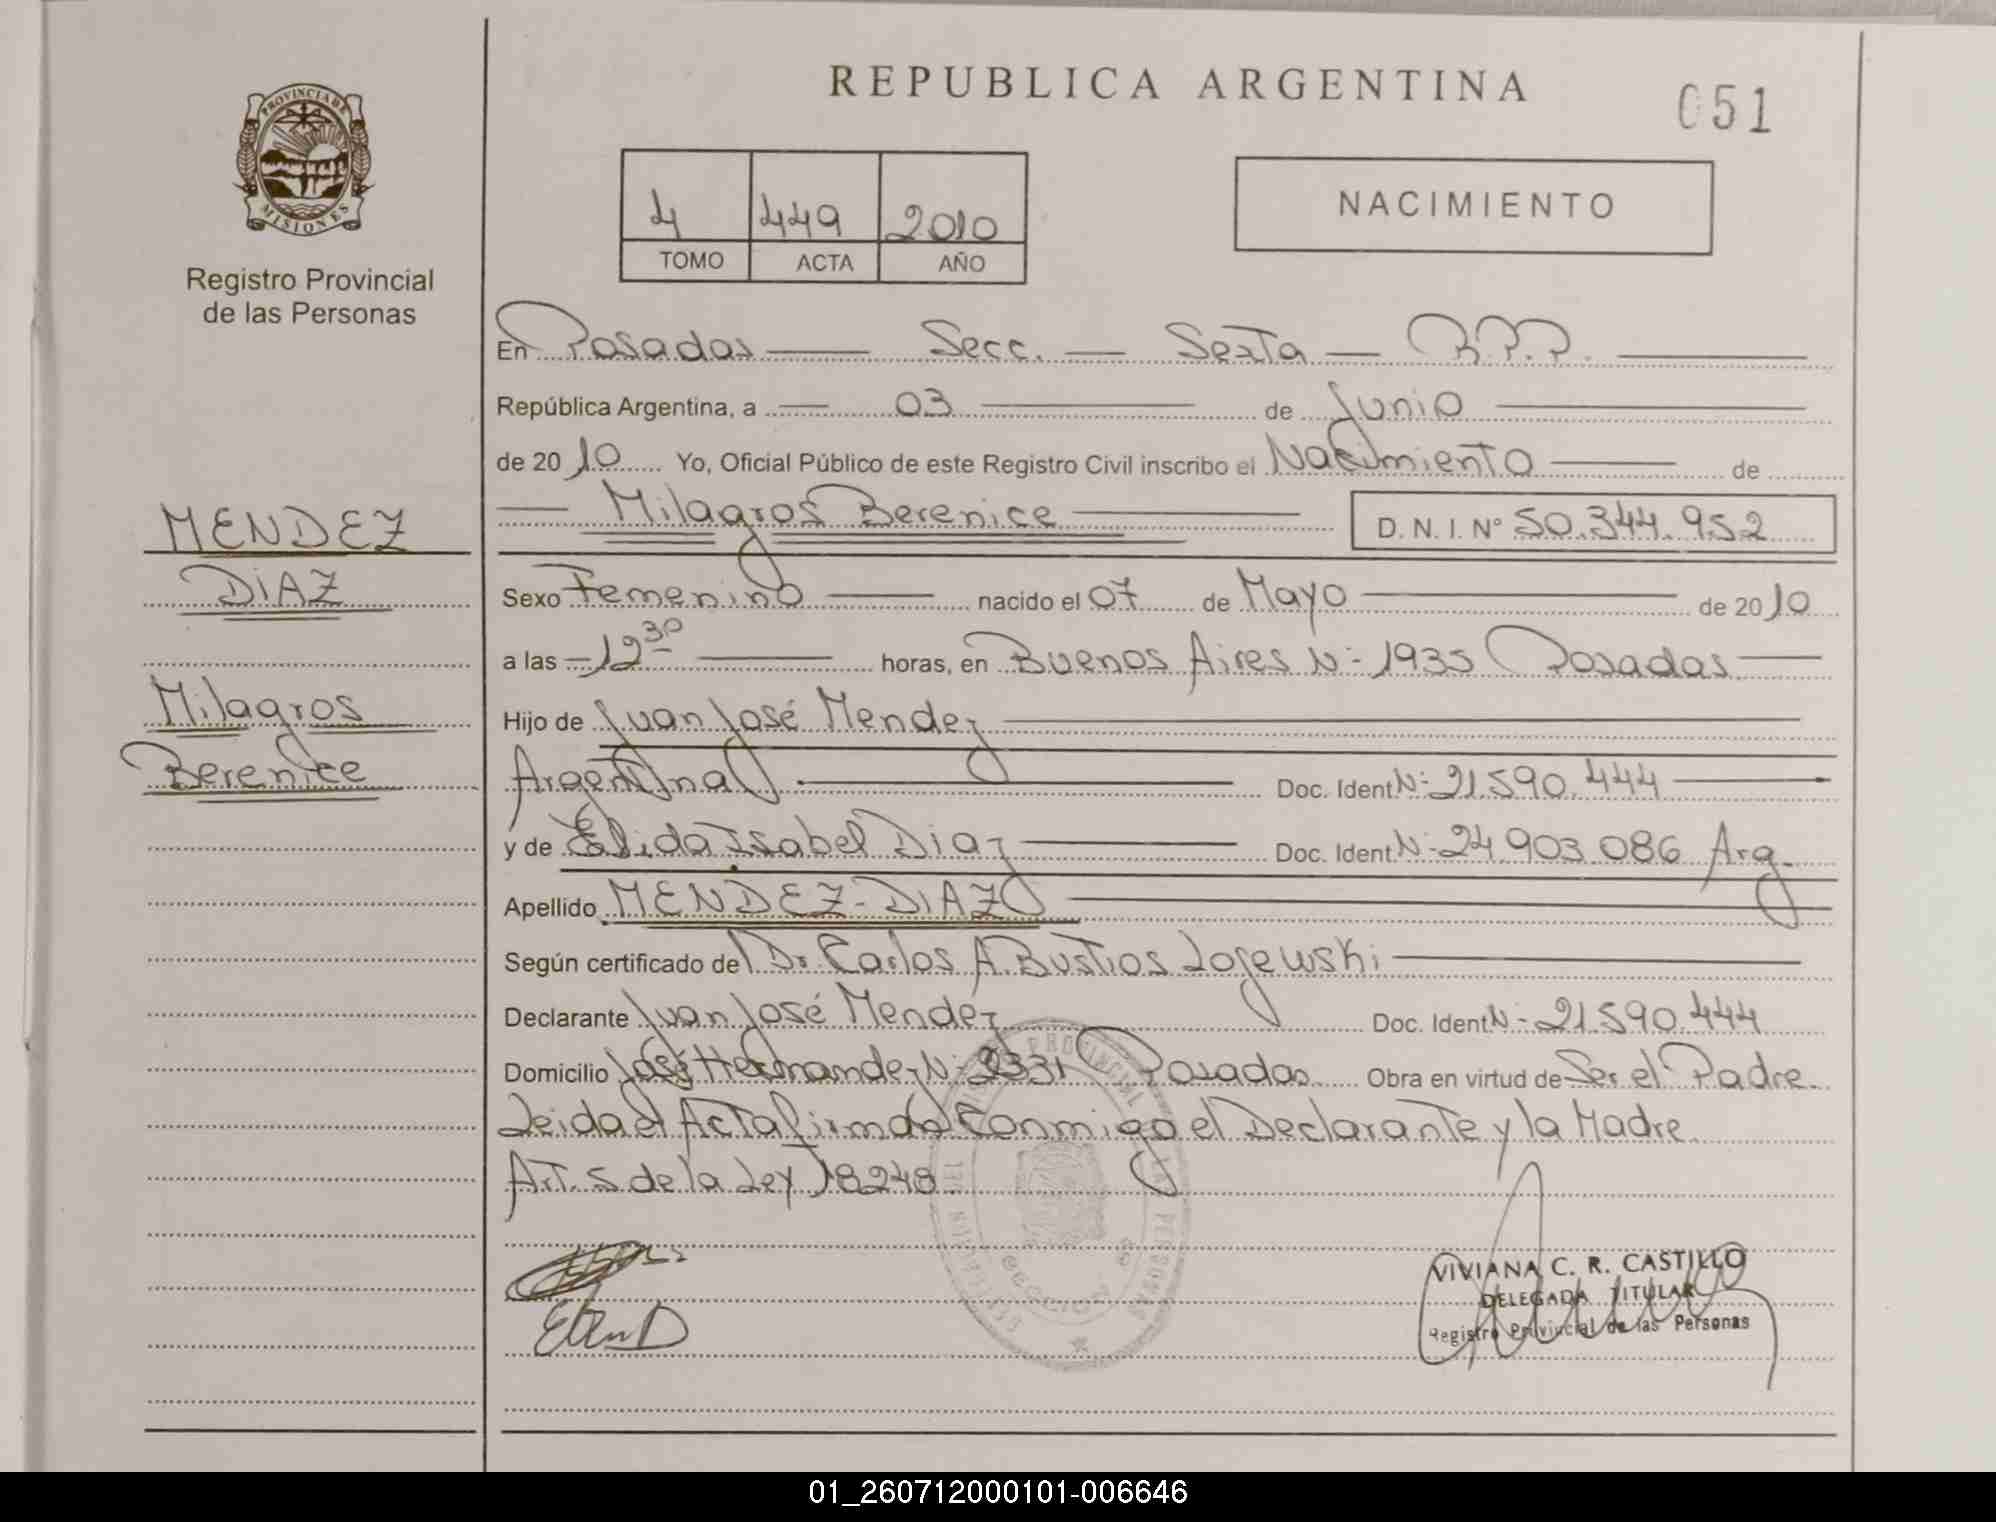 REPUBLICA ARGENTINA
051
PROVINCIA DE
MISIONES
Registro Provincial
de las Personas
4 449 2010
TOMO ACTA AÑO
NACIMIENTO
En Posadas — Secc. — Sexta — R.P.P. —
República Argentina, a — 03 — de Junio —
de 2010 Yo, Oficial Público de este Registro Civil inscribo el Nacimiento — de
— Milagros Berenice — D. N. I. N° 50.344.952
MENDEZ
DIAZ
Milagros
Berenice
Sexo Femenino — nacido el 07 de Mayo — de 2010
a las — 12 30 — horas, en Buenos Aires N: 1935 Posadas —
Hijo de Juan José Mendez —
Argentina — Doc. Ident N: 21.590.444 —
y de Elida Isabel Diaz — Doc. Ident N: 24.903.086 Arg.
Apellido MENDEZ - DIAZ —
Según certificado del Dr Carlos A. Bustios Lojewski —
Declarante Juan José Mendez Doc. Ident N: 21.590.444
Domicilio José Hernandez N: 2331 Posadas Obra en virtud de Ser el Padre
Leida el Acta firman Conmigo el Declarante y la Madre
Art. 5 de la Ley 18248.
VIVIANA C. R. CASTILLO
DELEGADA TITULAR
Registro Provincial de las Personas
01_260712000101-006646